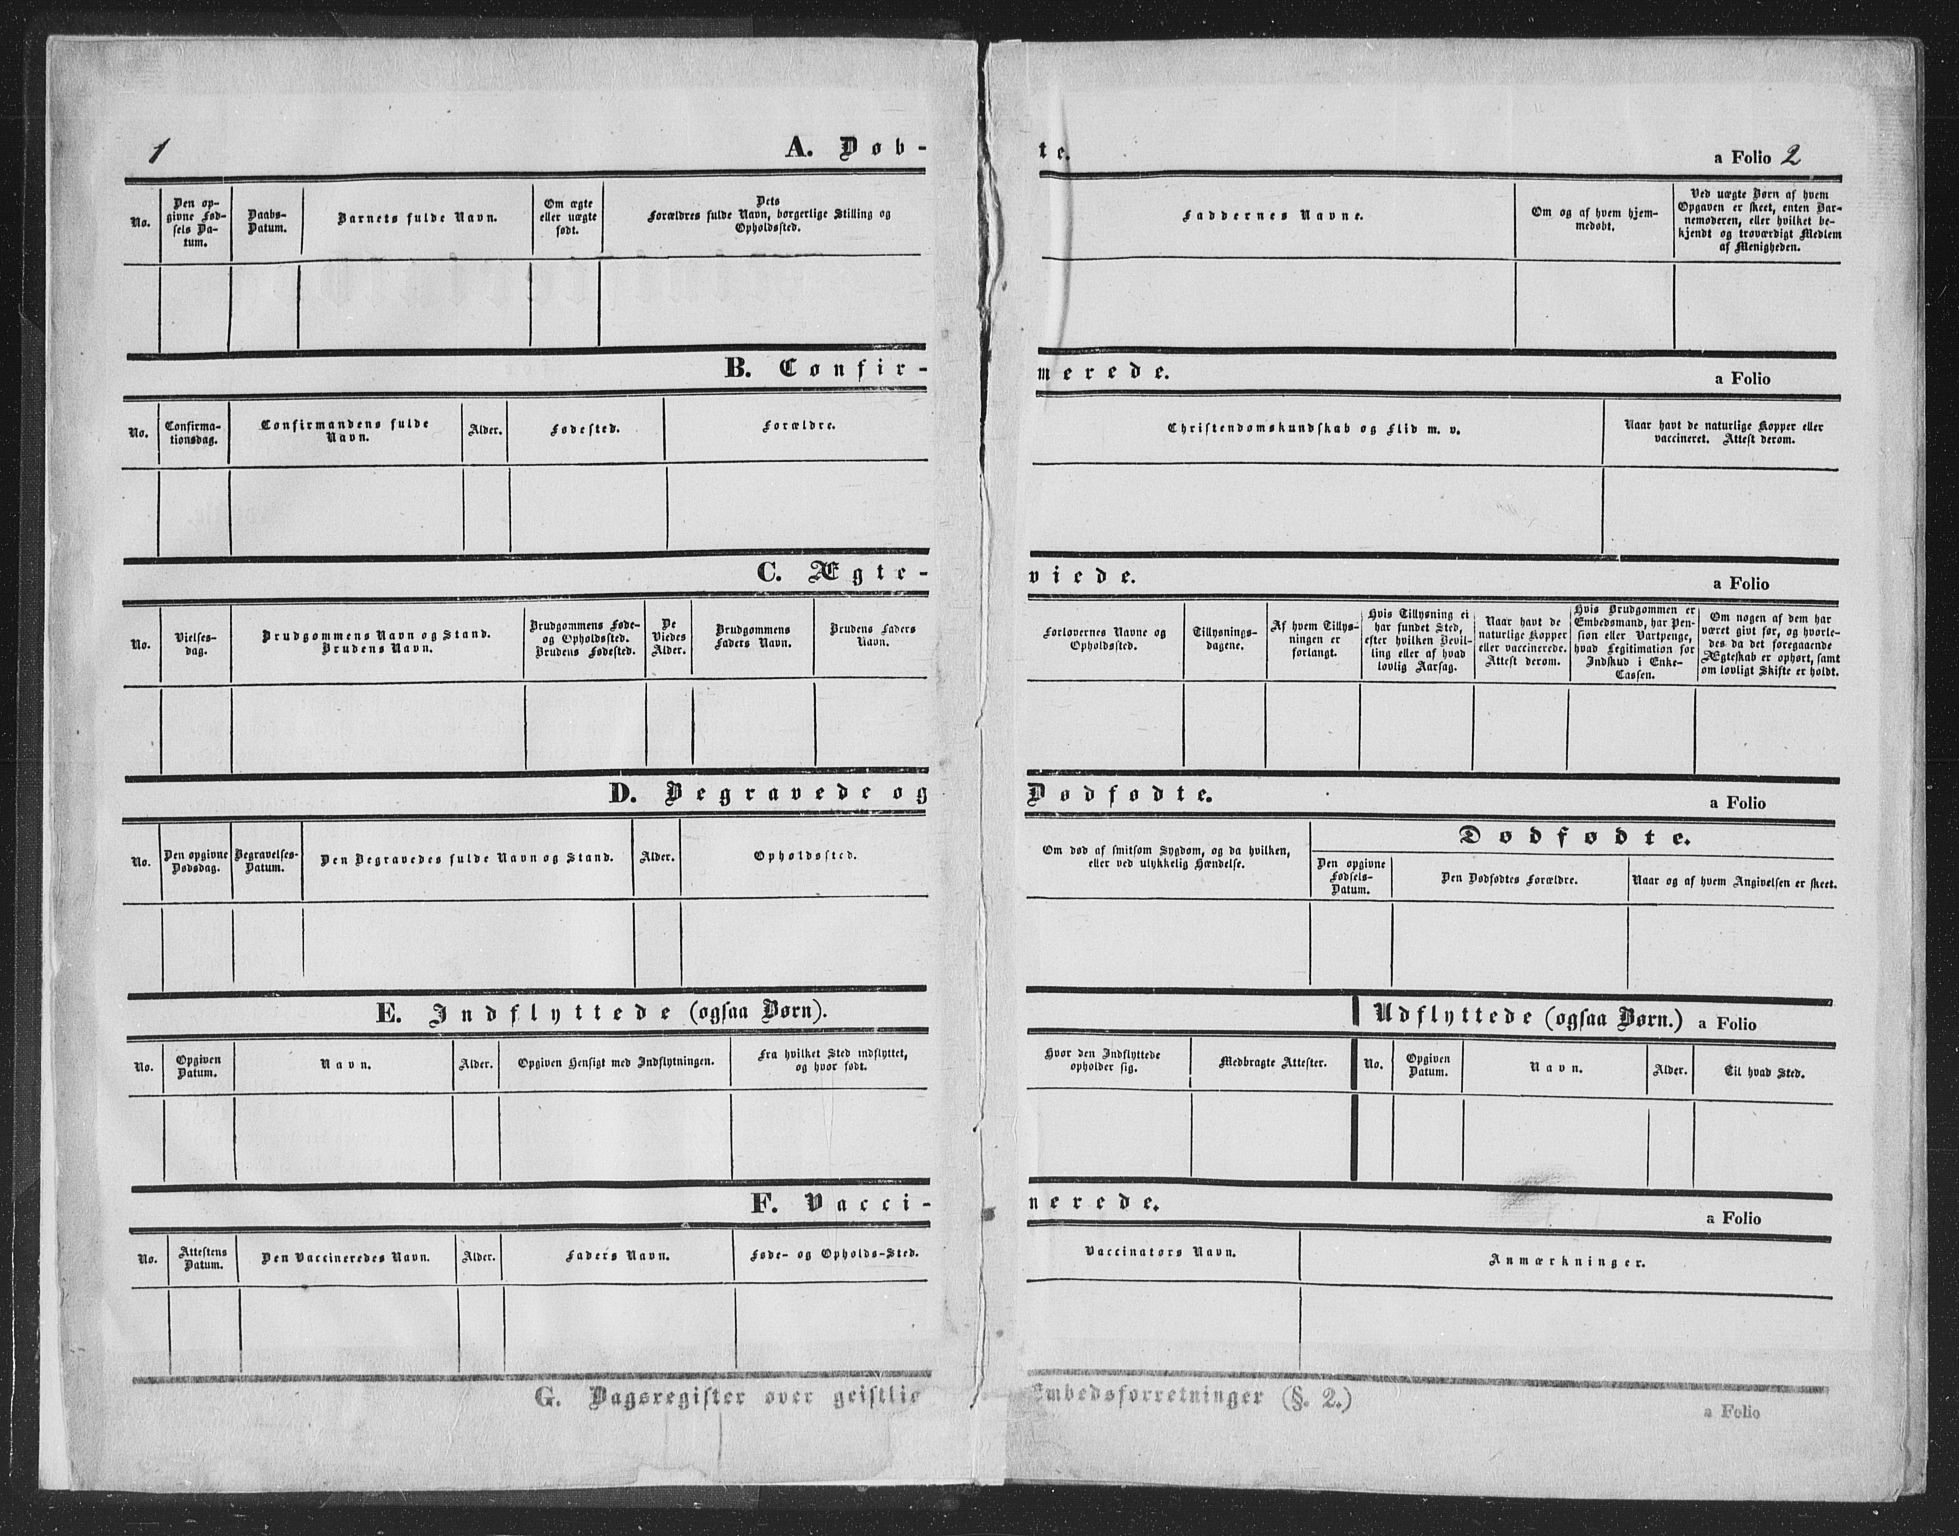 1
A. Døb-
te.
a Folio 2
No.
Den op-
givne Fød-
sels Da-
tum.
Daabs-
Datum.
Barnets fulde Navn.
Om ægte
eller uægte
født.
Dets
Forældres fulde Navn, borgerlige Stilling og
Opholdssted.
Faddernes Navne.
Om og af hvem hjem-
medøbt.
Ved uægte Børn af hvem
Opgaven er skeet, enten Bar-
nemoderen, eller hvilket be-
kjendt og troværdigt Medlem
af Menigheden.
B. Confir-
merede.
a Folio
No.
Confirma-
tionsdag.
Confirmandens fulde
Navn.
Alder.
Fødested.
Forældre.
Christendomskundskab og Flid m. v.
Naar havt de naturlige Kopper eller
vaccineret. Attest derom.
C. Ægte-
viede.
a Folio
No.
Vielses-
dag.
Brudgommens Navn og Stand.
Brudens Navn.
Brudgommens Føde-
og Opholdssted.
Brudens Fødested.
De
Viedes
Alder.
Brudgommens
Faders Navn.
Brudens Faders
Navn.
Forlovernes Navne og
Opholdssted.
Tillysnings-
dagene.
Af hvem Tillys-
ningen er
forlangt.
Hvis Tillysning ei
har fundet Sted,
efter hvilken Bevil-
ling eller af hvad
lovlig Aarsag.
Naar havt de
naturlige Kopper
eller vaccinerede.
Attest derom.
Hvis Brudgommen er
Embedsmand, har Pen-
sion eller Vartpenge,
hvad Legitimation for
Indskud i Enke-
Cassen.
Om nogen af dem har
været givt før, og hvorle-
des da det foregaaende
Ægteskab er ophørt, samt
om lovligt Skifte er holdt.
D. Begravede og
Dødfødte.
a Folio
No.
Den opgivne
Dødsdag.
Begravelses-
Datum.
Den Begravedes fulde Navn og Stand.
Alder.
Opholdssted.
Om død af smitsom Sygdom, og da hvilken,
eller ved ulykkelig Hændelse.
Dødfødte.
Den opgivne
Fødsels-
Datum.
Den Dødfødtes Forældre.
Naar og af hvem Angivelsen er skeet.
E. Indflyttede (ogsaa Børn).
Udflyttede (ogsaa Børn.) a Folio
No.
Opgiven
Datum.
Navn.
Alder.
Opgiven Hensigt med Indflytningen.
Fra hvilket Sted indflyttet,
og hvor født.
Hvor den Indflyttede
opholder sig.
Medbragte Attester.
No.
Opgiven
Datum.
Navn.
Alder.
Til hvad Sted.
F. Vacci-
nerede.
a Folio
No.
Attestens
Datum.
Den Vaccineredes Navn.
Alder.
Faders Navn.
Føde- og Opholds-Sted.
Vaccinators Navn.
Anmærkninger.
G. Dagsregister over geistlig
Embedsforretninger (§. 2.)
a Folio